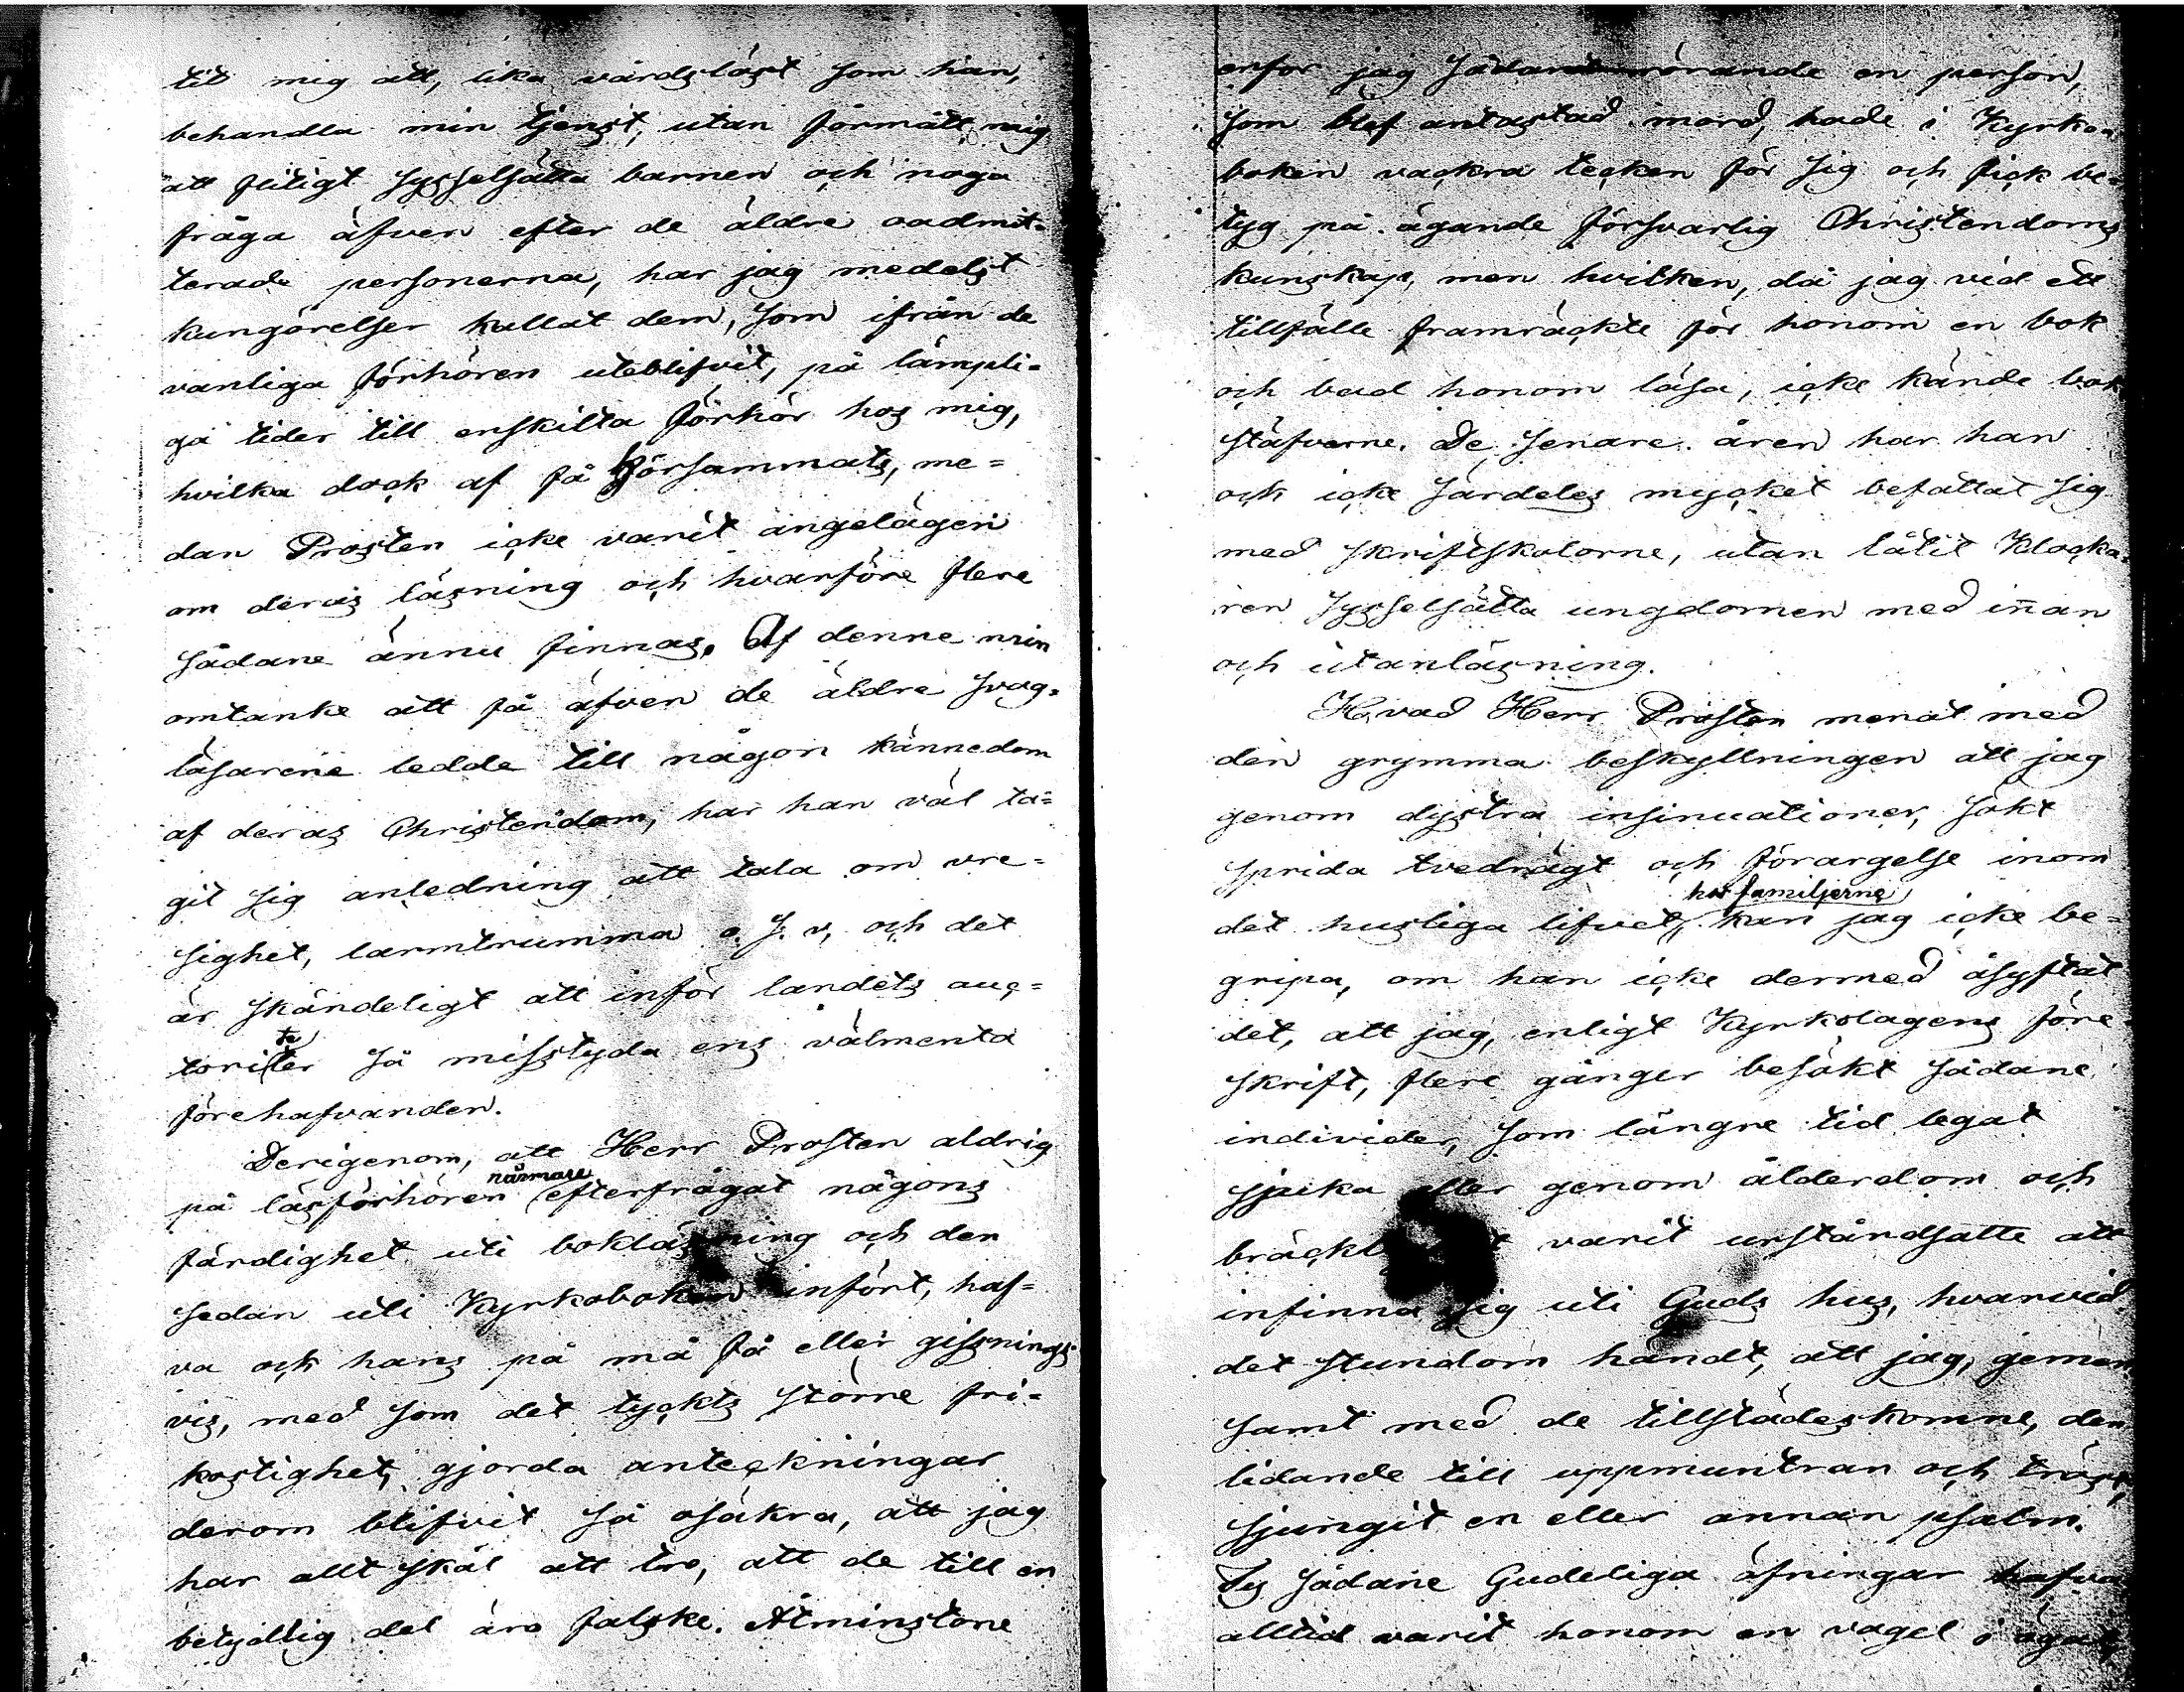 tit mig att, lika vårdslöst som han,
behandla min tjenst, utan förmått mig
att flitigt sysselsätta barnen och noga
fråga äfven efter de äldre oadmit-
terade personerna, har jag medelst
kungörelser kallat dem, som ifrån de
vanliga förhören uteblifvit, på lämpli-
ga tider till enskilta förhör hos mig,
hvilka dock af få hörsammats, me-
dan Prosten icke varit angelägen
om deras läsning och hvarföre flere
sådane ännu finnas. Af denne min
omtanke att få äfven de äldre svag-
läsarene ledde till någon kännedom
af deras Christendom, har han väl ta-
git sig anledning att tala om vre-
sighet, larmtrumma o. s. v, och det
är skändeligt att inför landets auc-
toriteter så misstyda ens välmenta
förehafvanden.
Derigenom, att Herr Prosten aldrig
på läsförhören närmare efterfrågat någons
färdighet uti bokläsning och den
sedan uti Kyrkoboken infört, haf-
va och hans på må få eller gissnings
vis, med som det tyckts större fri-
kostighet, gjorda anteckningar
derom blifvit så osäkra, att jag
har allt skäl att tro, att de till en
betydlig del äro falske. Åtminstone
erfor jag sådant rörande en person,
som blef antastad mord, hade i Kyrko-
boken vackra tecken för sig och fick be-
tyg på ägande försvarlig Christendoms
kunskap, men hvilken, då jag vid ett
tillfälle framräckte för honom en bok
och bad honom läsa, icke kände bok
stäfverne. De senare åren har han
och icke särdeles mycket befattat sig
med skriftskolorne, utan låtit Klocka-
ren sysselsätta ungdomen med innan
och utanläsning.
Hvad Herr Prosten menat med
den grymma beskyllningen att jag
genom dystra insinuationer, sökt
sprida tvedrägt och förargelse inom
det husliga lifvet hos familjerne, kan jag icke be-
gripa, om han icke dermed åsyftat
det, att jag, enligt Kyrkolagens före
skrift, flere gånger besökt sådane
individer, som längre tid legat
sjuka eller genom ålderdom och
varit urståndsatte att
infinna sig uti Guds hus, hvarvid
det stundom händt, att jag, gemen
samt med de tillstädeskomne, den
lidande till uppmuntran och tröst,
sjungit en eller annan psalm.
Ty sådane Gudeliga öfningar hafva
alltid varit honom en vagel i ögat,